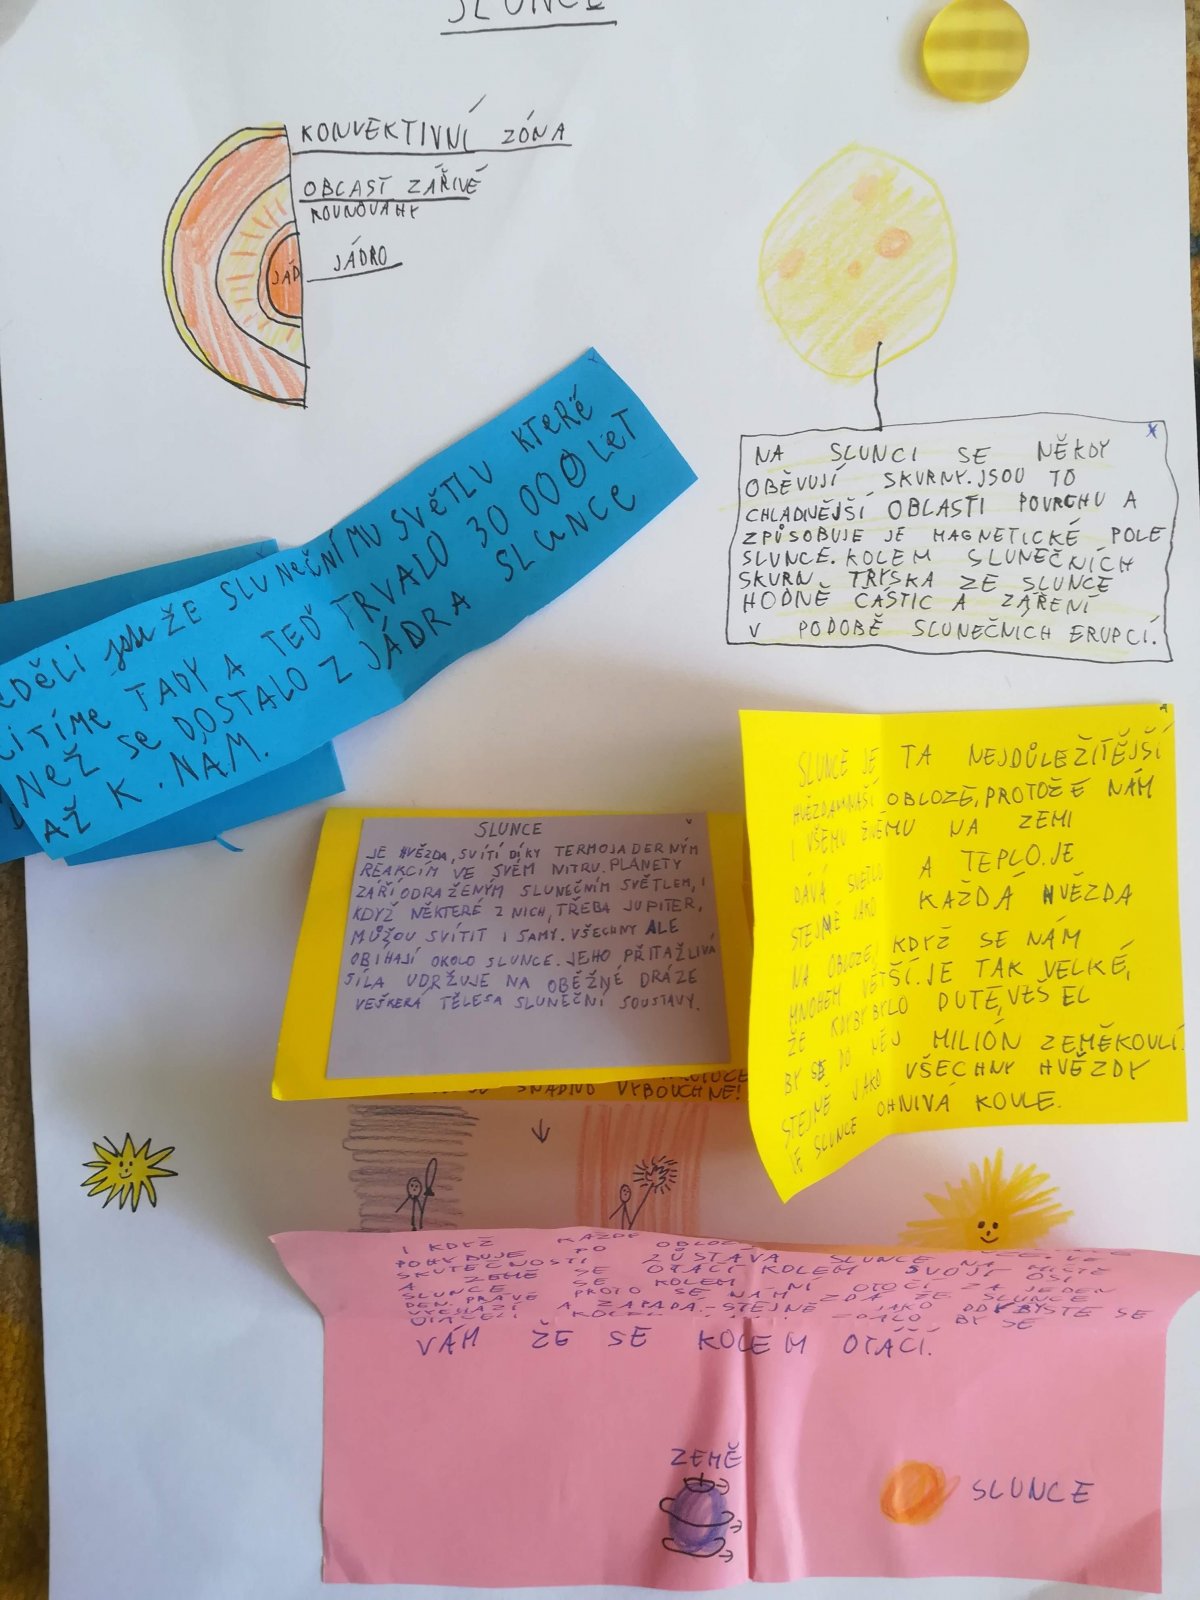 SLUNCE
KONVEKTIVNÍ ZÓNA
OBLAST ZÁŘIVÉ
ROVNOVÁHY
JÁDRO
JÁD
NA SLUNCI SE NĚKDY
OBĚVUJÍ SKVRNY. JSOU TO
CHLADNĚJŠÍ OBLASTI POVRCHU A
ZPŮSOBUJE JE MAGNETICKÉ POLE
SLUNCE. KOLEM SLUNEČNÍCH
SKVRN TRYSKA ZE SLUNCE
HODNĚ ČÁSTIC A ZÁŘENÍ
V PODOBĚ SLUNEČNÍCH ERUPCÍ.
ŽE SLUNEČNÍMU SVĚTLU KTERÉ
CÍTÍME TADY A TEĎ TRVALO 30 000 LET
NEŽ SE DOSTALO Z JÁDRA SLUNCE
AŽ K NÁM.
SLUNCE
JE HVĚZDA, SVÍTÍ DÍKY TERMOJADERNÝM
REAKCÍM VE SVÉM NITRU. PLANETY
ZÁŘÍ ODRAŽENÝM SLUNEČNÍM SVĚTLEM, I
KDYŽ NĚKTERÉ Z NICH, TŘEBA JUPITER,
MŮŽOU SVÍTIT I SAMY. VŠECHNY ALE
OBIHAJÍ OKOLO SLUNCE. JEHO PŘITAŽLIVÁ
SÍLA UDRŽUJE NA OBĚŽNÉ DRÁZE
VEŠKERÁ TĚLESA SLUNEČNÍ SOUSTAVY.
VYBOUCHNE!
SLUNCE JE TA NEJDŮLEŽÍTĚJŠÍ
HVĚZDA NAŠÍ OBLOZE, PROTOŽE NÁM
I VŠEMU ŽIVÉMU NA ZEMI
DÁVÁ SVĚTLO A TEPLO. JE
STEJNĚ JAKO KAŽDÁ HVĚZDA
NA OBLOZE, KDYŽ SE NÁM
MNOHEM VĚTŠÍ. JE TAK VELKÉ,
ŽE KDYBY BYLO DUTÉ, VEŠEL
BY SE DO NĚJ MILIÓN ZEMĚKOULÍ.
STEJNĚ JAKO VŠECHNY HVĚZDY
JE SLUNCE OHNIVÁ KOULE.
I KDYŽ KAŽDÝ
POHYBUJE PO ZŮSTÁVÁ SLUNCE NA MÍSTĚ
SKUTEČNOSTI SE OTÁČÍ KOLEM SVOJÍ OSI
A ZEMĚ SE KOLEM NÍ OTOČÍ ZA JEDEN
DEN. PRÁVĚ PROTO SE NÁM ZDÁ ŽE SLUNCE
VYCHÁZÍ A ZAPADÁ - STEJNĚ JAKO
ZDALO BY SE
VÁM ŽE SE KOLEM OTÁČÍ.
ZEMĚ
SLUNCE